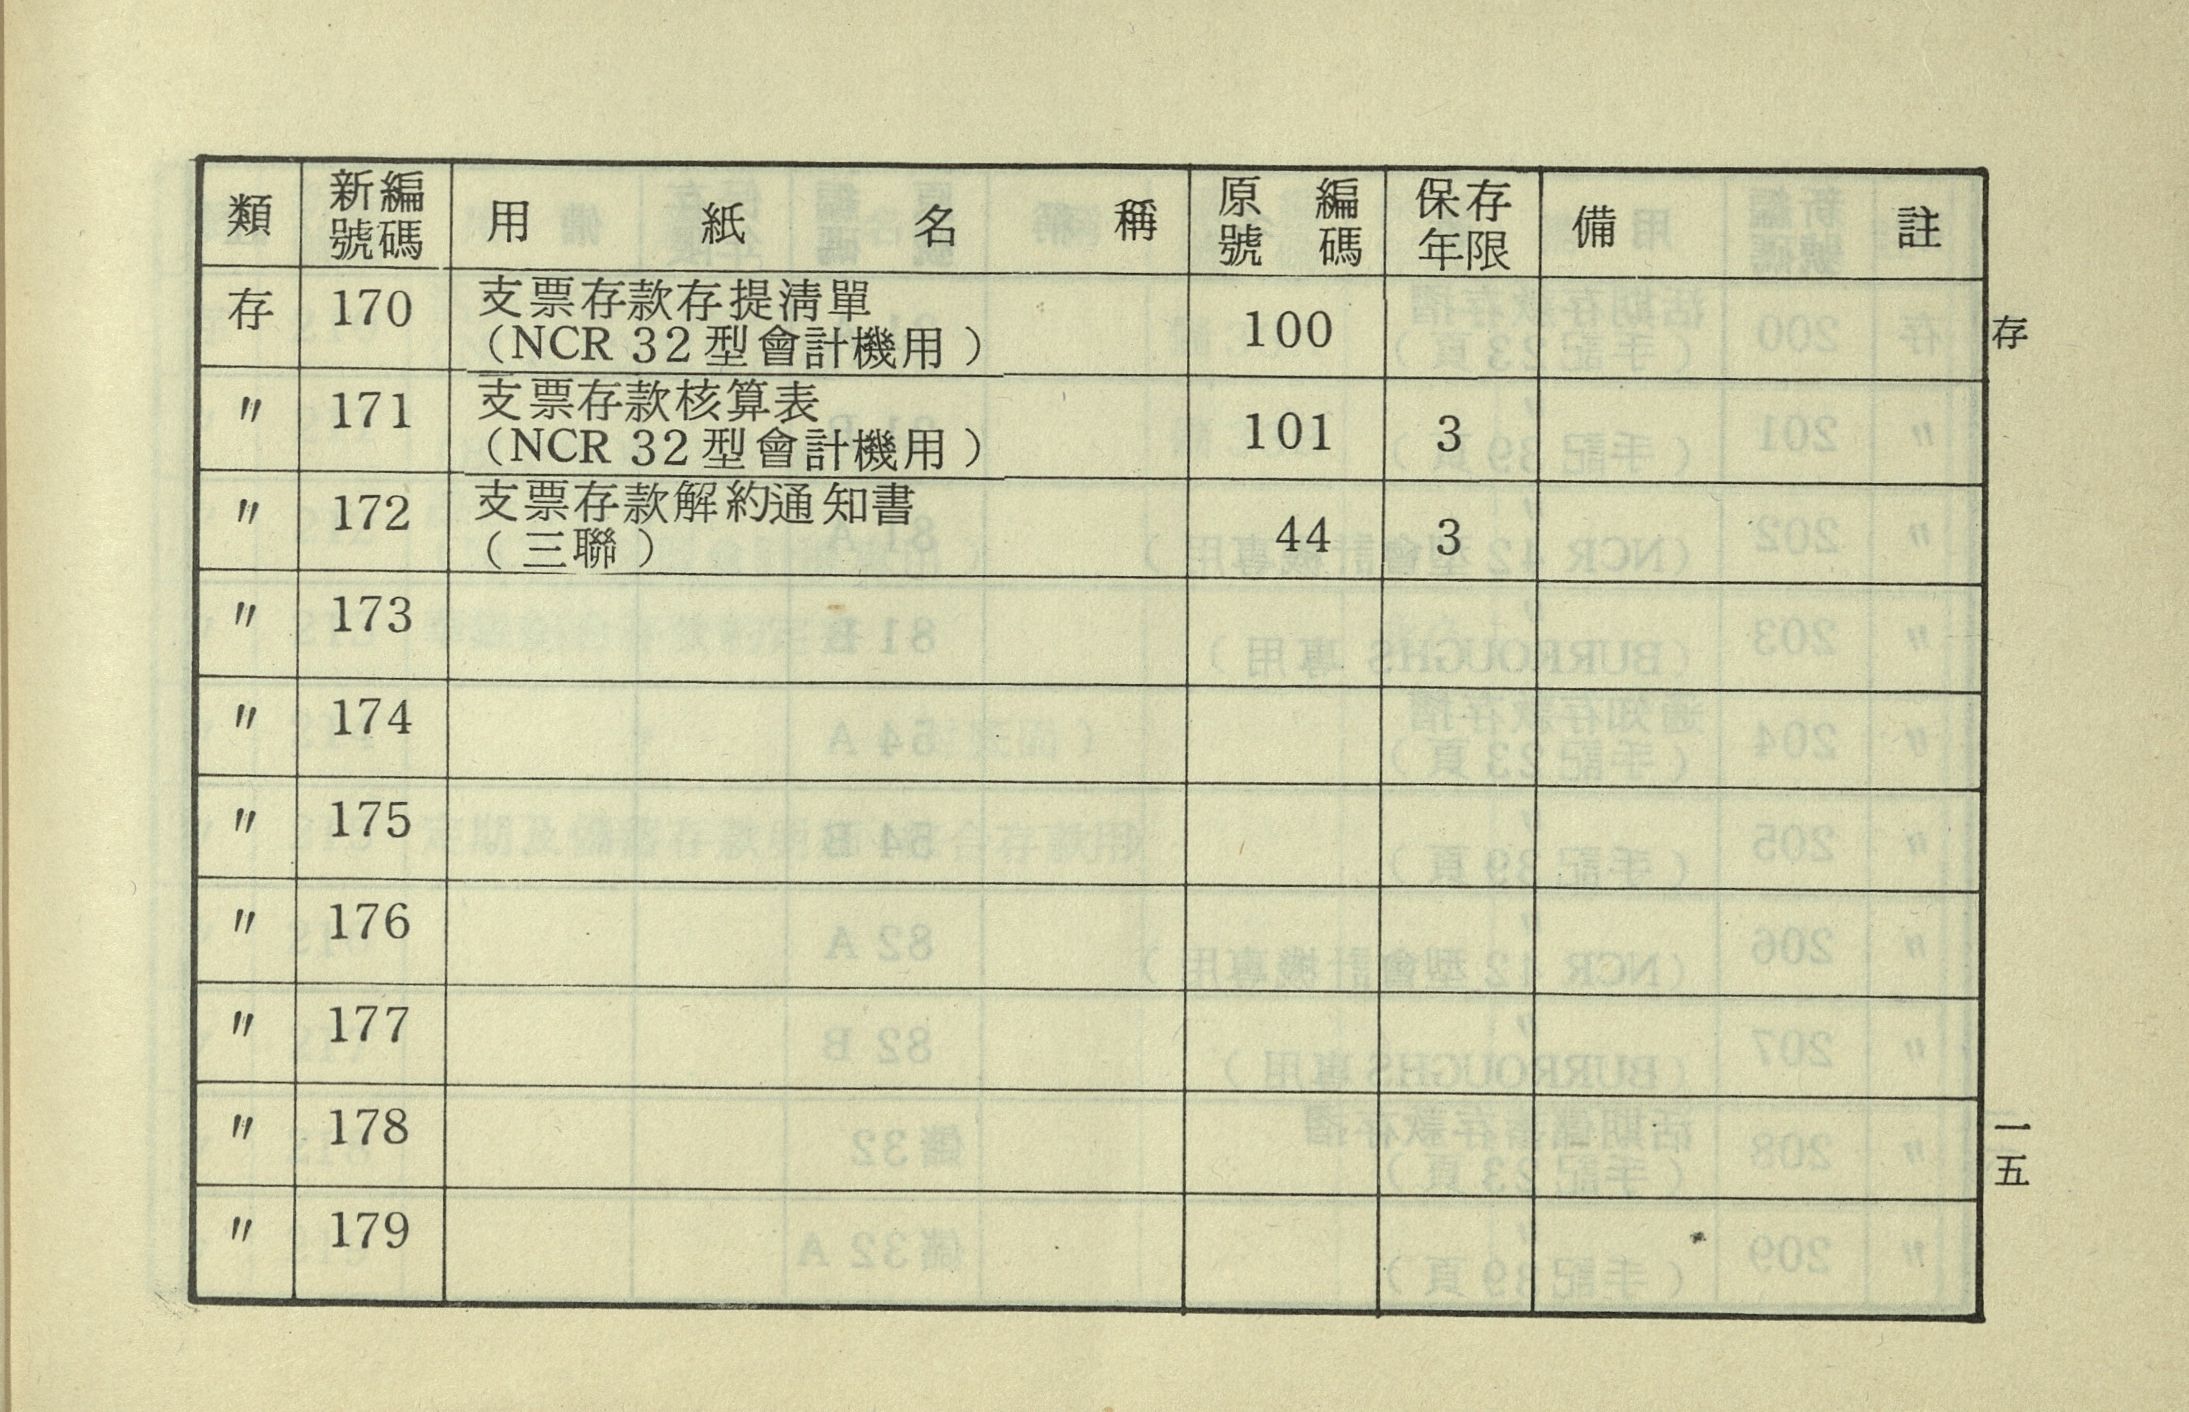 類 新編號碼 用紙名稱 原編號碼 保存年限 備註
存 170 支票存款存提淸單 100
(NCR 32型會計機用)
〃 171 支票存款核算表 101 3
(NCR 32型會計機用)
〃 172 支票存款解約通知書 44 3
(三聯)
〃 173
〃 174
〃 175
〃 176
〃 177
〃 178
〃 179
存
一五